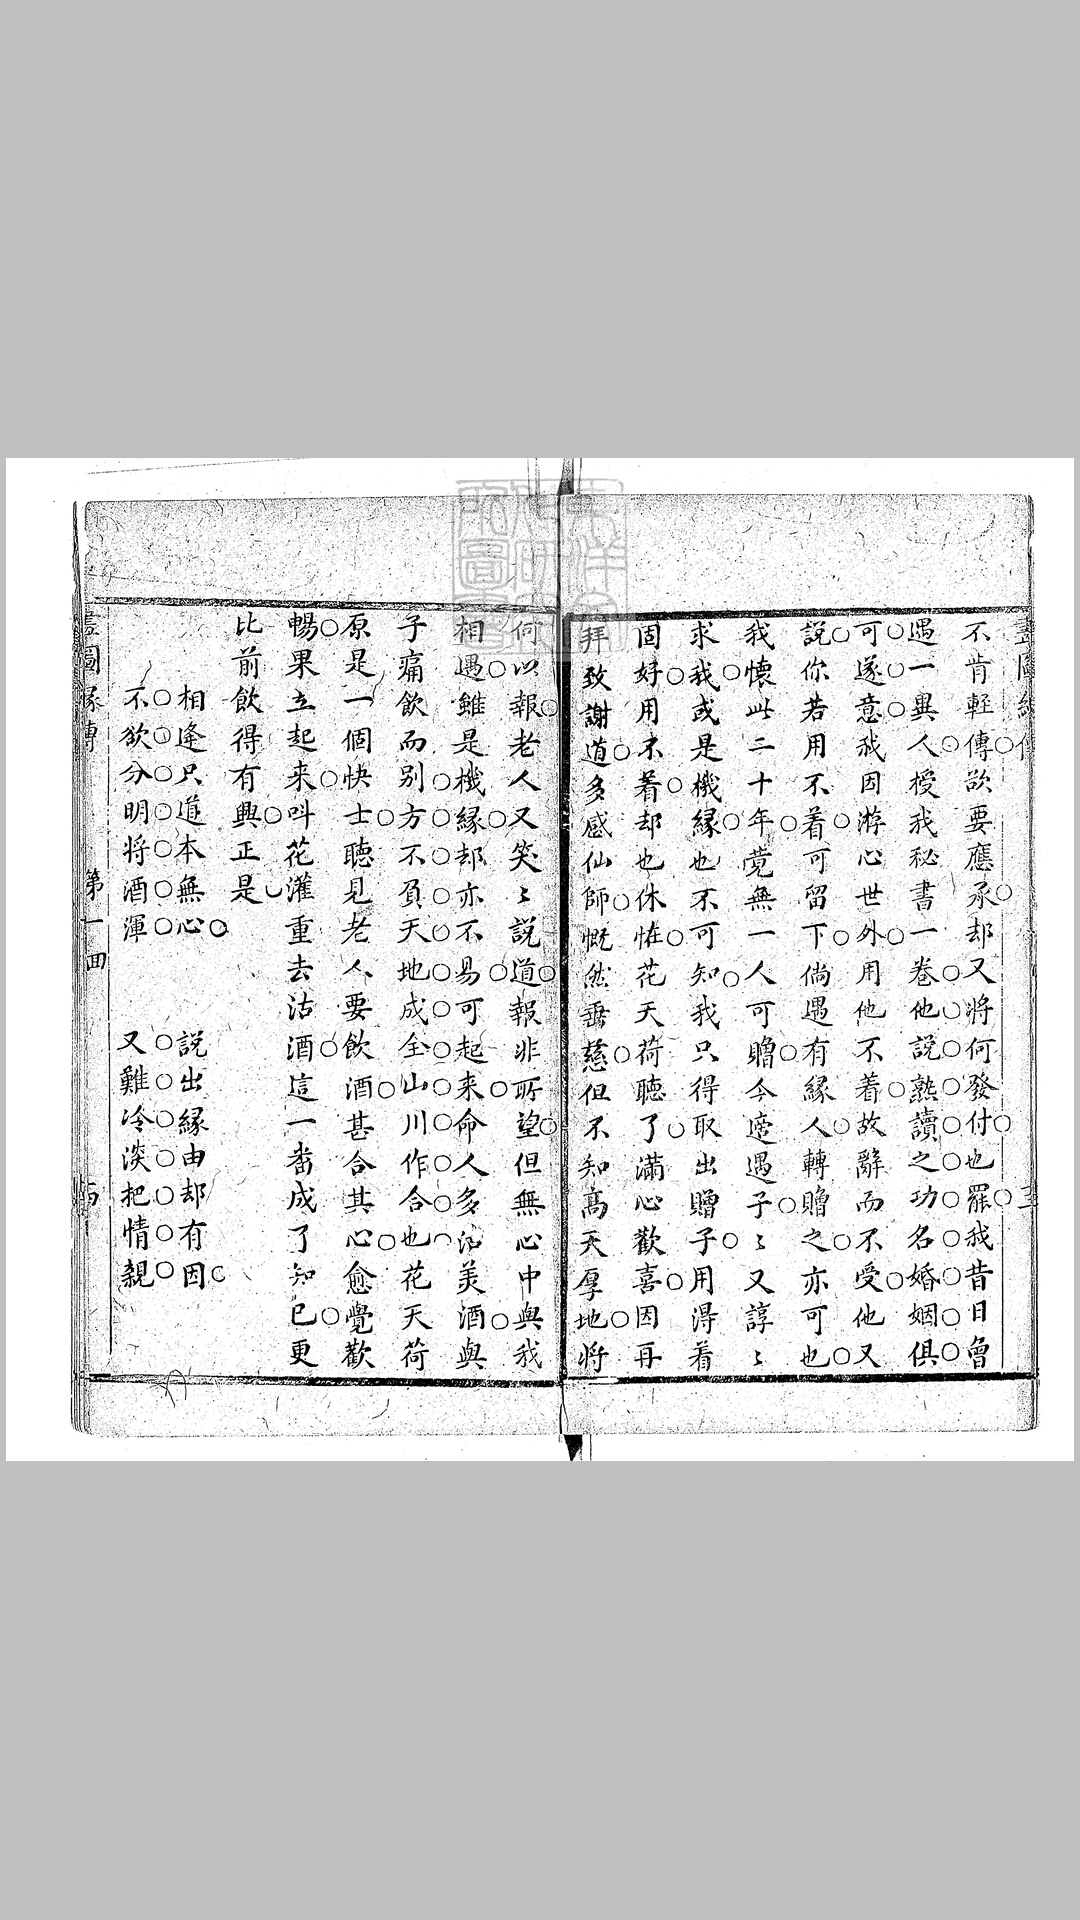 不肯軽傳欲要應承却又將何發付也罷我昔日曾
遇一異人授我秘書一卷他説熟讀之功名婚姻俱
可遂意我因游心世外用他不着故辭而不受他又
說你若用不着可留下倘遇有縁人轉贈之亦可也
我懷此二十年竟無一人可贈今適遇子〻又諄〻
求我或是機縁也不可知我只得取出贈子用得着
固好用不着却也休怪花天荷聽了滿心歡喜因再
拜致謝道多感仙師慨然垂慈但不知高天厚地將
何以報老人又笑〻說道報非所望但無心中與我
相遇雖是機縁却亦不易可起来命人多沽美酒與
子痛飲而别方不負天地成全山川作合也花天荷
原是一個快士聽見老人要飲酒甚合其心愈覺歡
暢果立起来呌花灌重去沽酒這一畨成了知已更
比前飲得有興正是
相逢只道本無心 説出縁由却有因
不欲分明將酒渾 又難冷淡把情親
畫圖縁傳 第一回